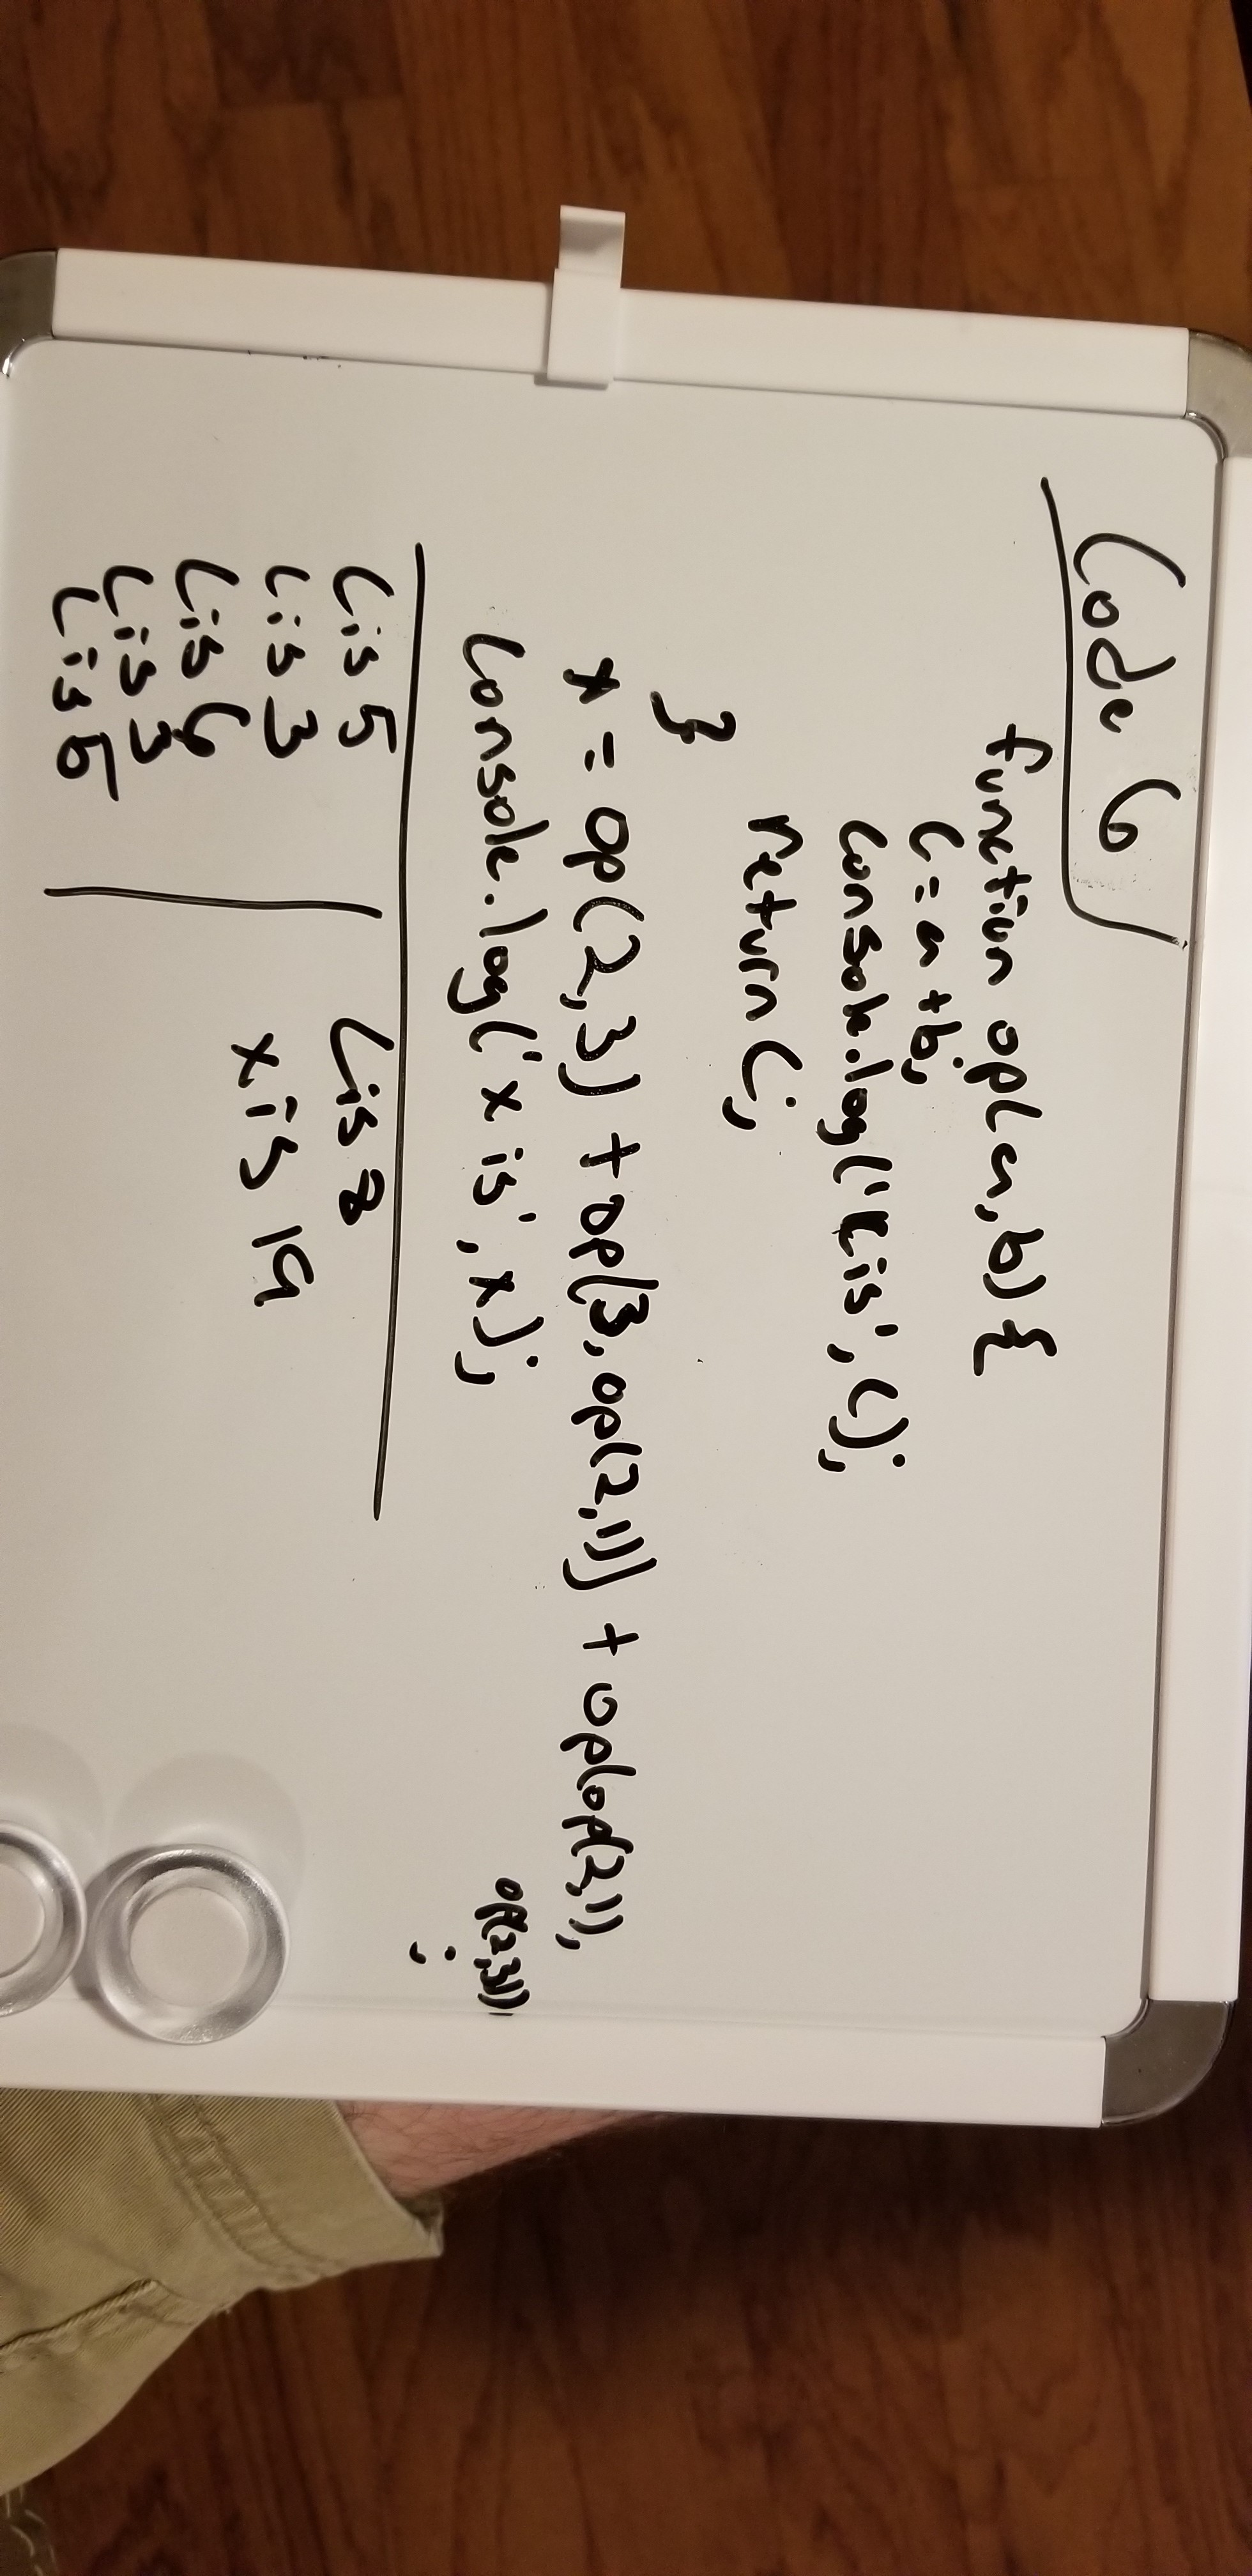 Code 6
function op(a,b) {
c = a + b;
console.log('c is', c);
return c;
}
x = op(2,3) + op(3, op(2,1)) + op(op(2,1),
op(2,3));
console.log('x is', x);
c is 5
c is 3
c is 6
c is 3
c is 5
c is 8
x is 19